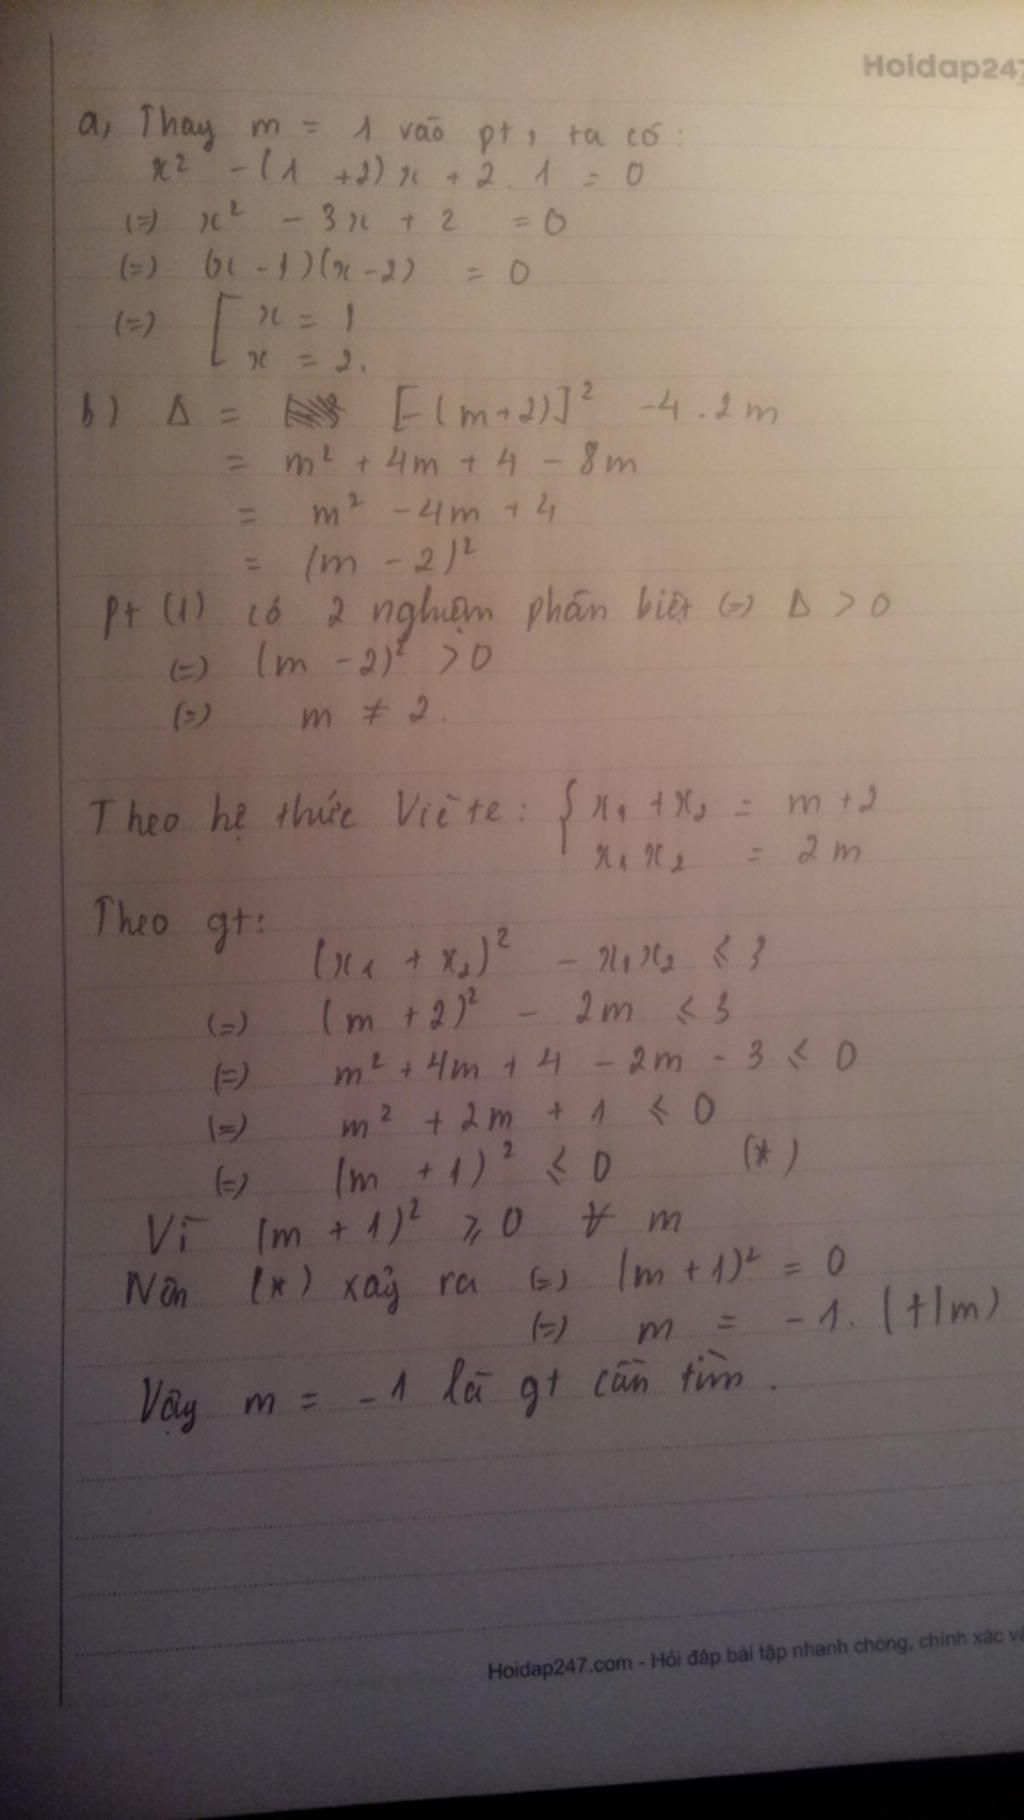 Hoidap247
a, Thay m = 1 vào pt, ta có:
x² - (1 + 2)x + 2.1 = 0
(=) x² - 3x + 2 = 0
(=) (x - 1)(x - 2) = 0
(=) [ x = 1
x = 2.
b) Δ = [-(m+2)]² - 4.2m
= m² + 4m + 4 - 8m
= m² - 4m + 4
= (m - 2)²
Pt (1) có 2 nghiệm phân biệt (=) Δ > 0
(=) (m - 2)² > 0
(=) m ≠ 2.
Theo hệ thức Viète: { x₁ + x₂ = m + 2
x₁x₂ = 2m
Theo gt:
(x₁ + x₂)² - x₁x₂ ≤ 3
(=) (m + 2)² - 2m ≤ 3
(=) m² + 4m + 4 - 2m - 3 ≤ 0
(=) m² + 2m + 1 ≤ 0
(=) (m + 1)² ≤ 0 (*)
Vì (m + 1)² ≥ 0 ∀ m
Nên (*) xảy ra (=) (m + 1)² = 0
(=) m = -1. (t/m)
Vậy m = -1 là gt cần tìm.
Hoidap247.com - Hỏi đáp bài tập nhanh chóng, chính xác và